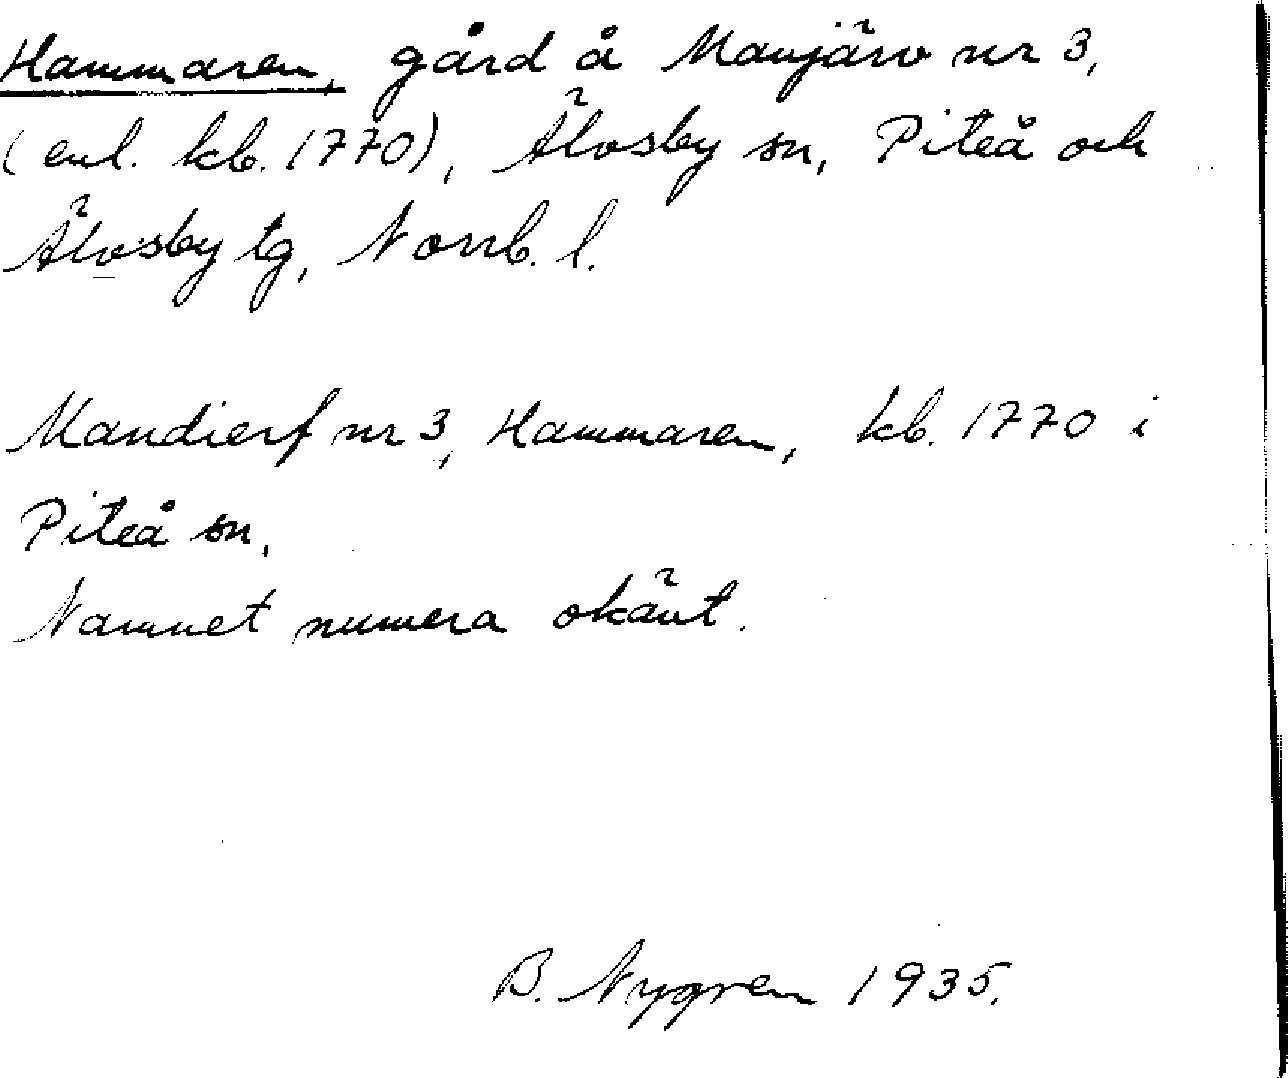 Hammaren, gård å Manjärv nr 3,
(enl. kb. 1770), Älvsby sn, Piteå och
Älvsby tg, Norrb. l.
Mandierf nr 3, Hammaren, kb. 1770 i
Piteå sn.
Namnet numera okänt.
B. Nygren 1935.